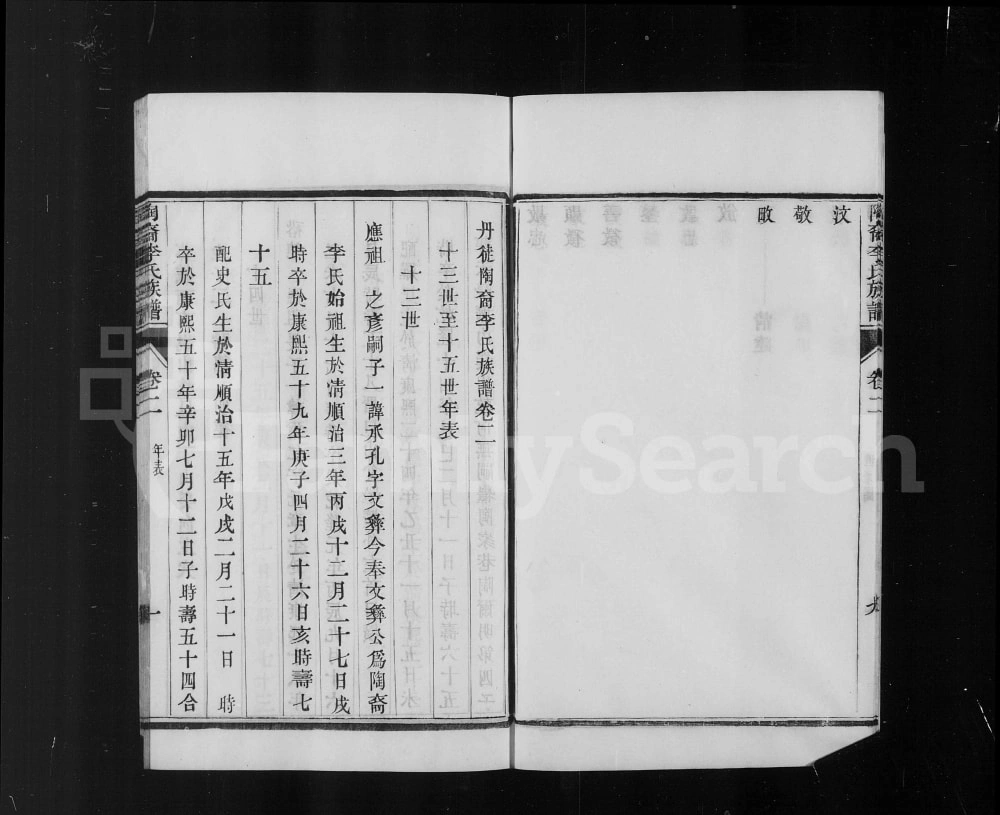 汶
敬
畋
陶裔李氏族譜
卷二
九
丹徒陶裔李氏族譜卷二
十三世至十五世年表
十三世
應祖 之彥嗣子一諱承孔字文彝今奉文彝公爲陶裔
李氏始祖生於清順治三年丙戌十二月二十七日戌
時卒於康熙五十九年庚子四月二十六日亥時壽七
十五
配史氏生於清順治十五年戊戌二月二十一日 時
卒於康熙五十年辛卯七月十二日子時壽五十四合
陶裔李氏族譜
卷二
年表
一
FamilySearch